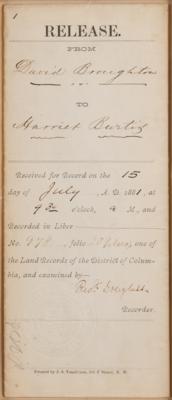 1
RELEASE.
FROM
David Broughton
TO
Harriet Burtis
Received for Record on the 15
day of July A. D. 1881, at
9 30 o'clock, a M., and
Recorded in Liber
No. 978, folio one of
the Land Records of the District of Colum-
bia, and examined by—
Fredk. Douglass
Recorder.